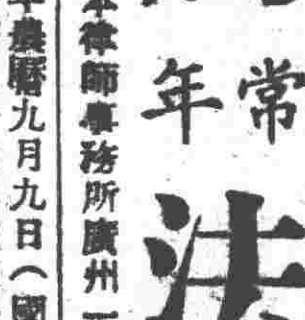 常
年
法
本律師事務所廣州
農曆九月九日（國